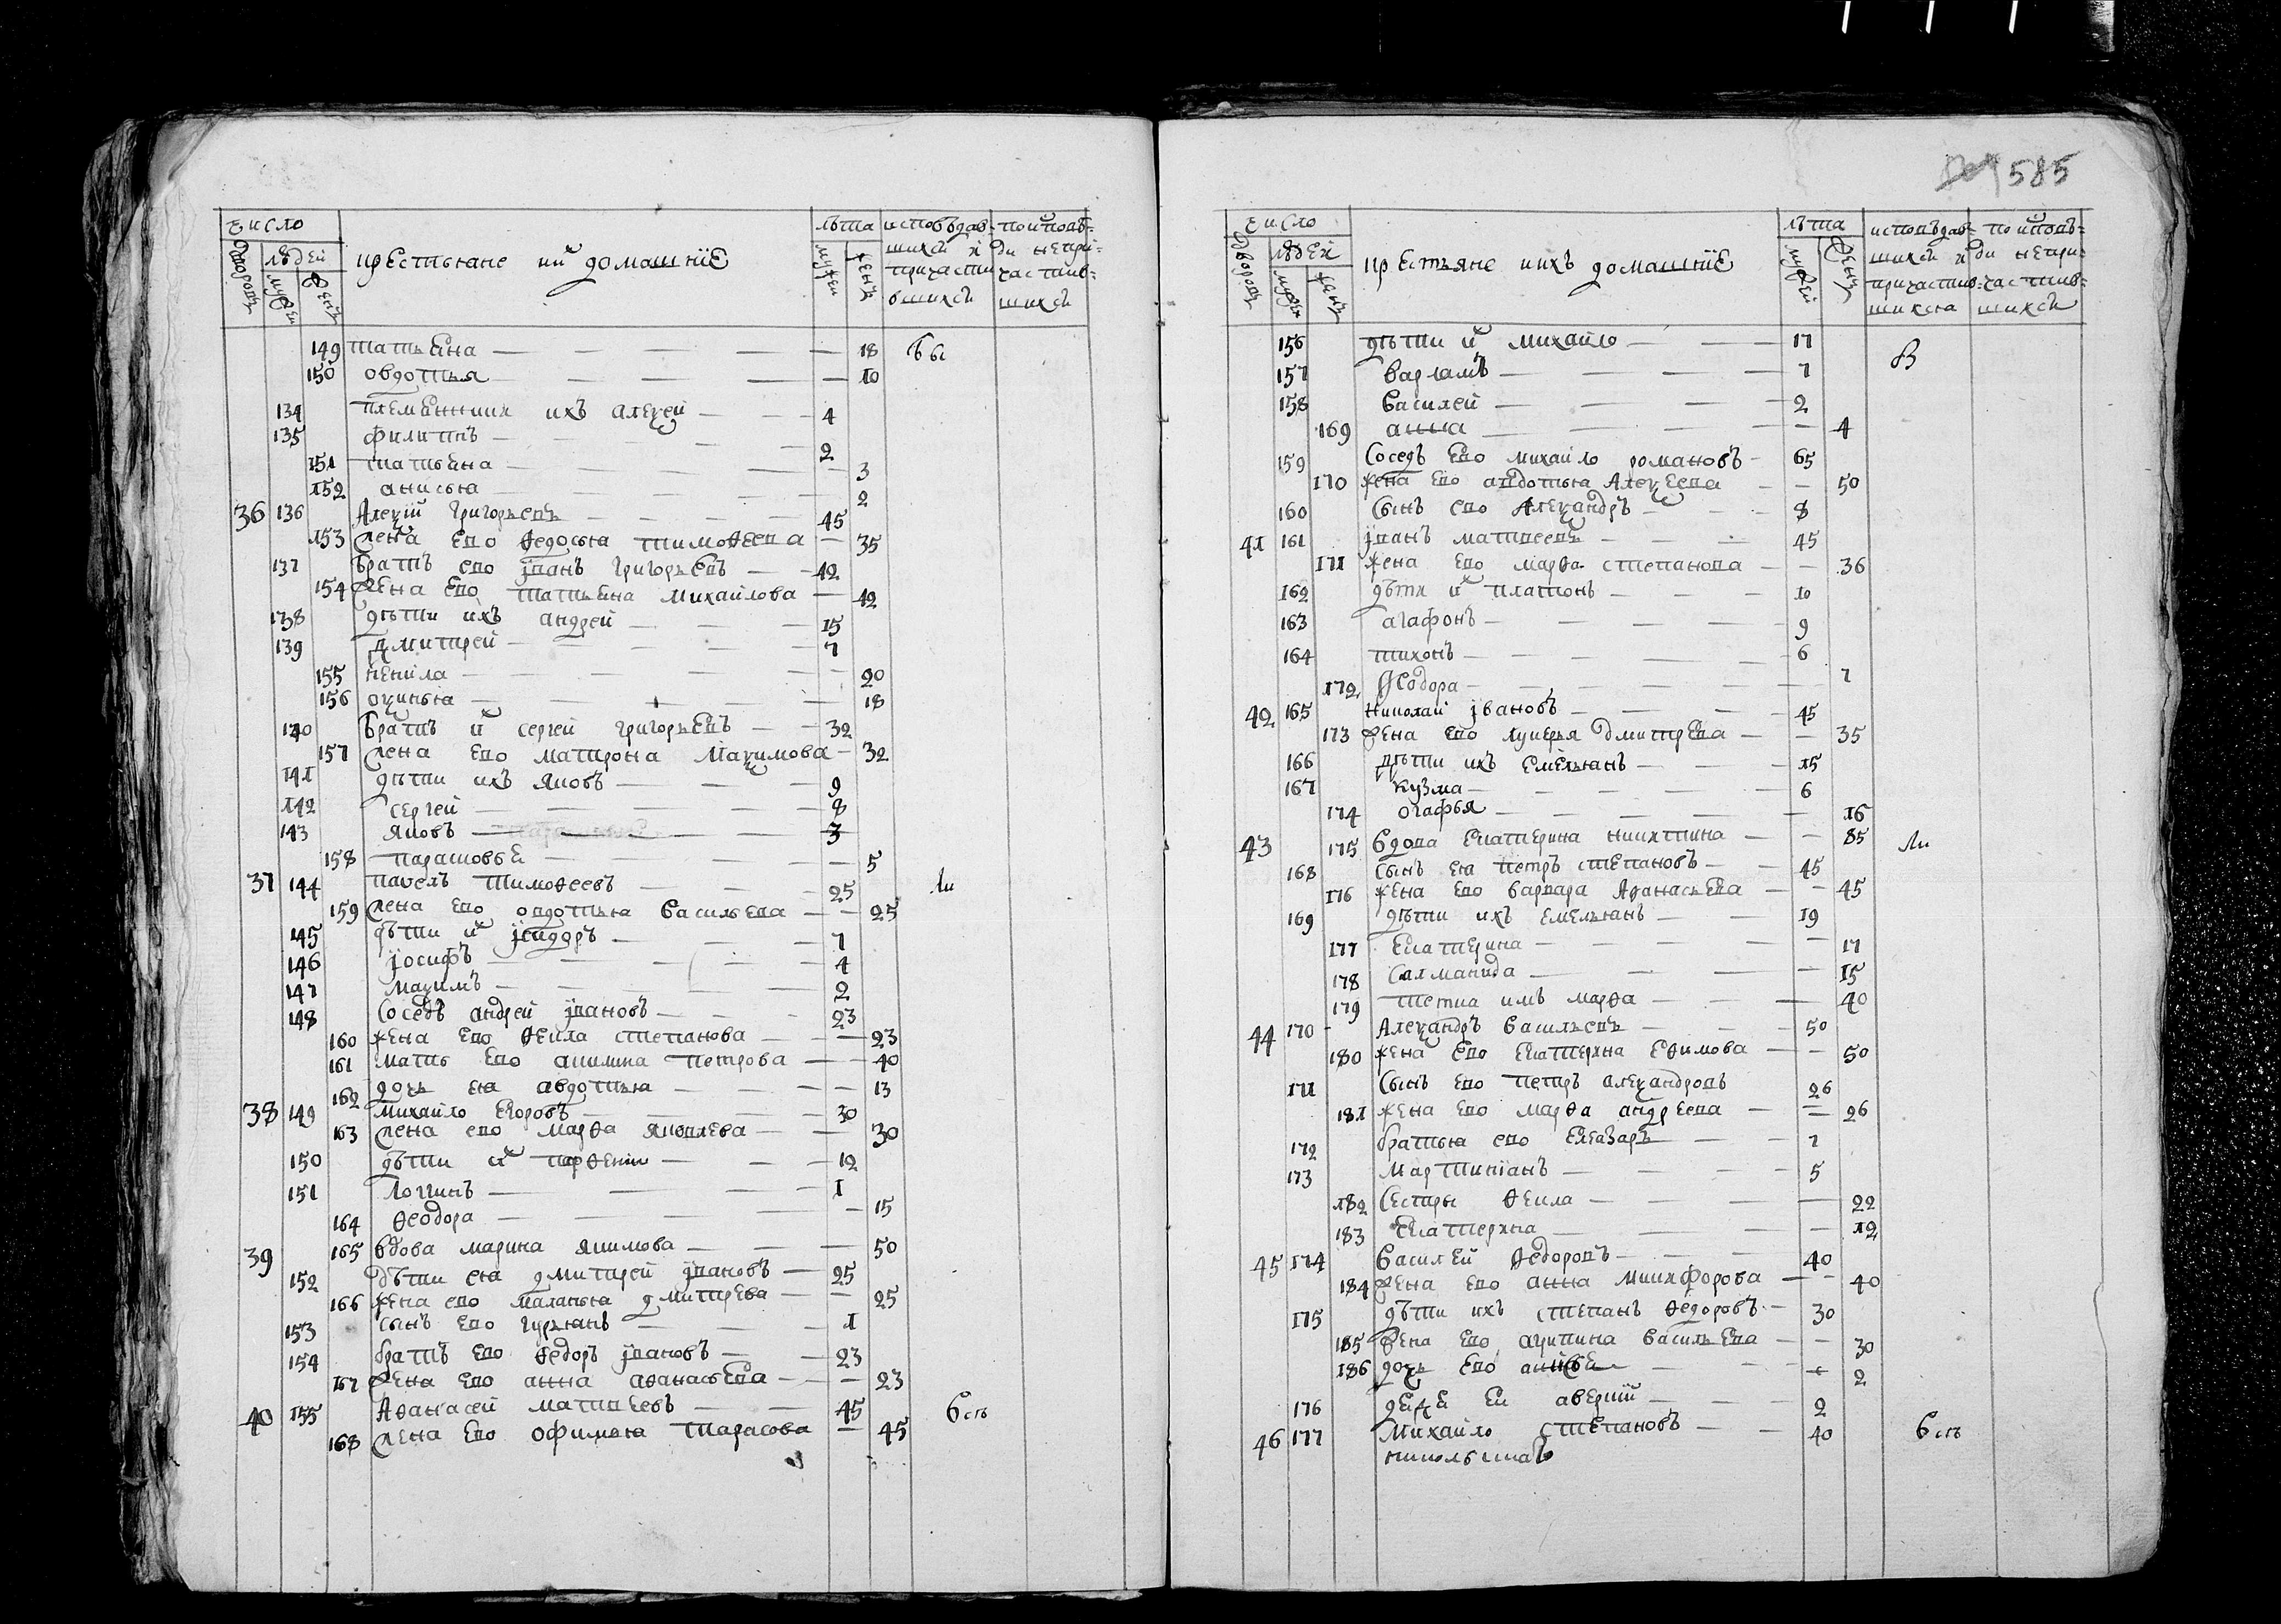 585
число лѣта исповѣдав- по исповѣ-
дворовъ людей мужей женъ крестьяне и их домашнїе мужей женъ шихся и причасти вшихся ди непри- частив- шихся
149 татьяна 18 бы
150 овдотья 10
134 племянники ихъ алексей 4
135 филипъ 2
151 татьяна 3
152 анисья 2
36 136 Алексїй Григорьевъ 45
153 жена ево ѳедосья тимоѳеева 35
137 братъ ево їванъ Григорьевъ 42
154 жена ево татьяна михайлова 42
138 дѣти ихъ андрей 15
139 дмитрей 7
155 ненила 20
156 оксинья 18
140 братъ их сергей григорьевъ 32
157 жена ево матрона Максимова 32
141 дѣти ихъ яковъ 9
142 сергей 8
143 яковъ 3
158 парасковья 5
37 144 павелъ тимоѳеевъ 25 ли
159 жена ево овдотья васильева 25
145 дѣти их їсидоръ 7
146 їосифъ 4
147 максимъ 2
148 соседъ андрей ївановъ 23
160 жена ево ѳекла степанова 23
161 мать ево акилина петрова 40
162 дочь ея авдотья 13
38 149 михайло егоровъ 30
163 жена ево марѳа яковлева 30
150 дѣти их парѳений 12
151 логинъ 1
164 ѳеодора 15
39 165 вдова марина якимова 50
152 дѣти ея дмитрей ївановъ 25
166 жена ево маланья дмитрева 25
153 сынъ ево гурьянъ 1
154 братъ ево ѳедоръ ївановъ 23
167 жена ево анна аѳанасьева 23
40 155 Аѳанасей матвеевъ 45 всѣ
168 жена ево офимья тарасова 45
число лѣта исповѣдав- по исповѣ-
дворовъ людей мужей женъ крестьяне и ихъ домашнїе мужей женъ шихся и причастив- шихся ди непри- частив- шихся
156 дѣти их михайло 17 в
157 варламъ 7
158 василей 2
169 анна 4
159 соседъ ево михайло романовъ 65
170 жена ево авдотья Алексеева 50
160 сынъ ево Александръ 8
41 161 їванъ матвеевъ 45
171 жена ево марѳа степанова 36
162 дѣти их платонъ 10
163 агафонъ 9
164 тихонъ 6
172 ѳеодора 7
42 165 николай ївановъ 45
173 жена ево лукерья дмитрева 35
166 дѣти ихъ емельянъ 15
167 кузма 6
174 огафья 16
43 175 вдова екатерина никитина 85 ли
168 сынъ ея петръ степановъ 45
176 жена ево варвара Аѳанасьева 45
169 дѣти ихъ емельянъ 19
177 екатерина 17
178 салманида 15
179 тетка имъ марѳа 40
44 170 Александръ васильевъ 50
180 жена ево екатерина еѳимова 50
171 сынъ ево петръ александровъ 26
181 жена ево марѳа андреева 26
172 братья ево елеазаръ 7
173 мартинїанъ 5
182 сестры ѳекла 22
183 екатерина 12
45 174 василей ѳедоровъ 40
184 жена ево анна микифорова 40
175 дѣти ихъ степанъ ѳедоровъ 30
185 жена ево акилина васильева 30
186 дочь ево 2
176 аверкїй 2
46 177 михайло степановъ 40 всѣ